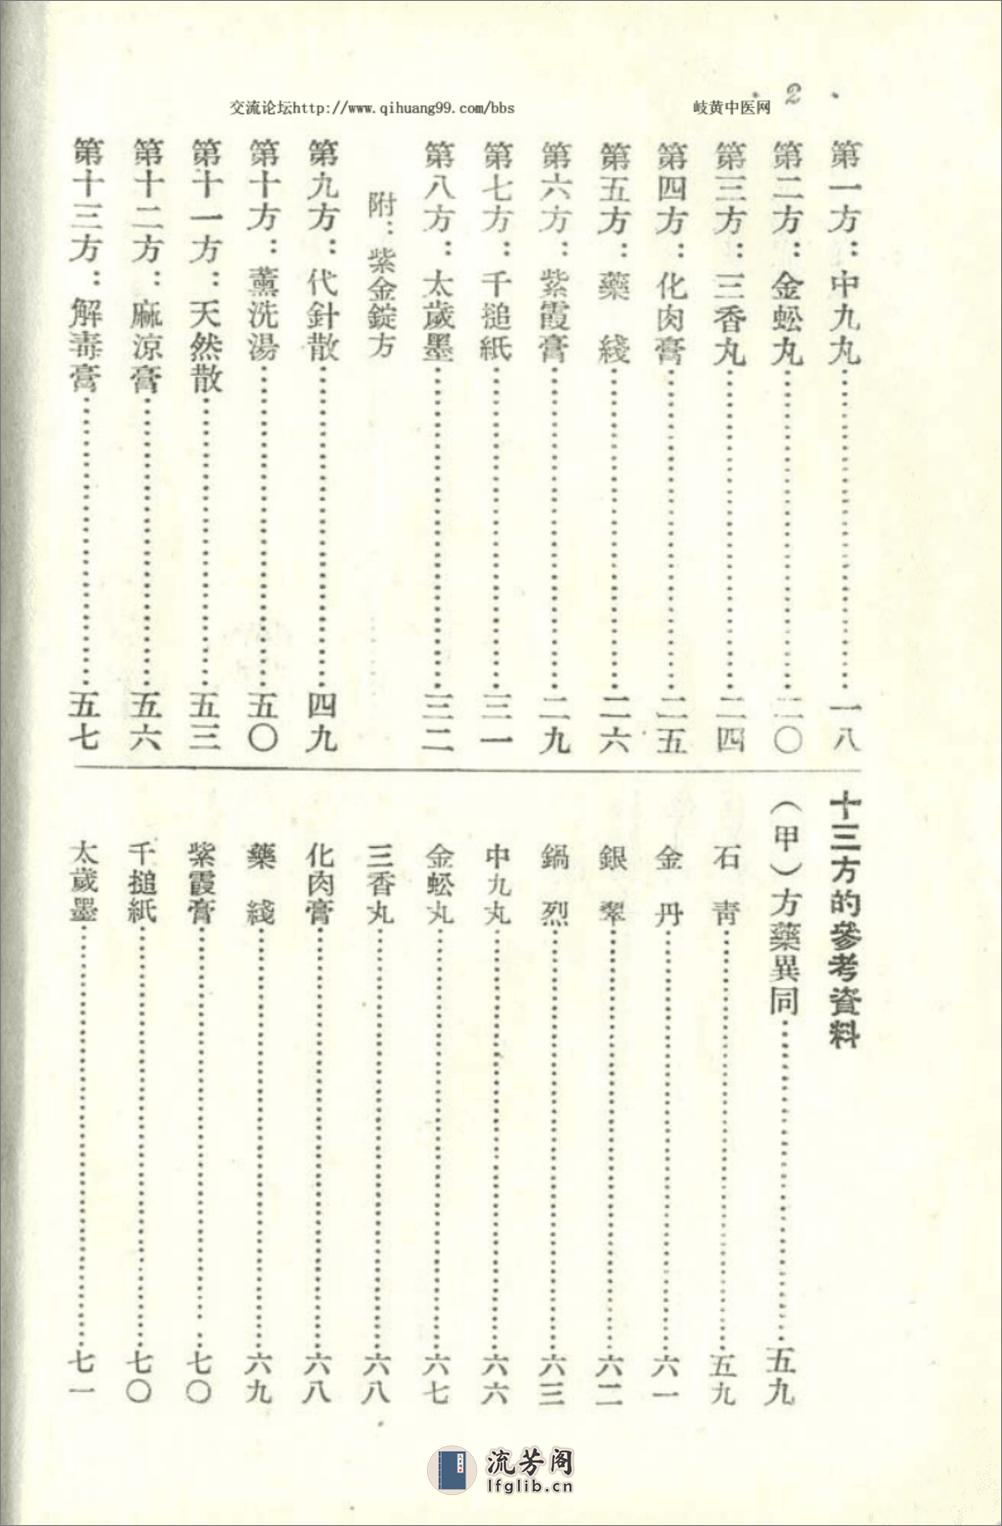 交流论坛http://www.qihuang99.com/bbs
岐黄中医网
· 2 ·
第一方：中九丸……………一八
第二方：金蚣丸……………二〇
第三方：三香丸……………二四
第四方：化肉膏……………二五
第五方：藥　綫……………二六
第六方：紫霞膏……………二九
第七方：千搥紙……………三一
第八方：太歲墨……………三二
附：紫金錠方
第九方：代針散……………四九
第十方：薰洗湯……………五〇
第十一方：天然散……………五三
第十二方：麻涼膏……………五六
第十三方：解毒膏……………五七
十三方的參考資料
（甲）方藥異同……………五九
石　青……………五九
金　丹……………六一
銀　翠……………六二
鍋　烈……………六三
中九丸……………六六
金蚣丸……………六七
三香丸……………六八
化肉膏……………六八
藥　綫……………六九
紫霞膏……………七〇
千搥紙……………七〇
太歲墨……………七一
流芳阁
lfglib.cn